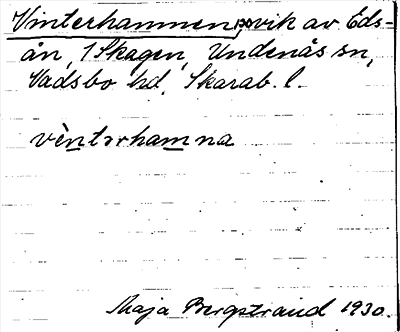 Vinterhamnen, vik av Eds-
ån, 1 Skagen, Undenäs sn,
Vadsbo hd, Skarab. l.
vèntərhamna
Maja Bergstrand 1930.